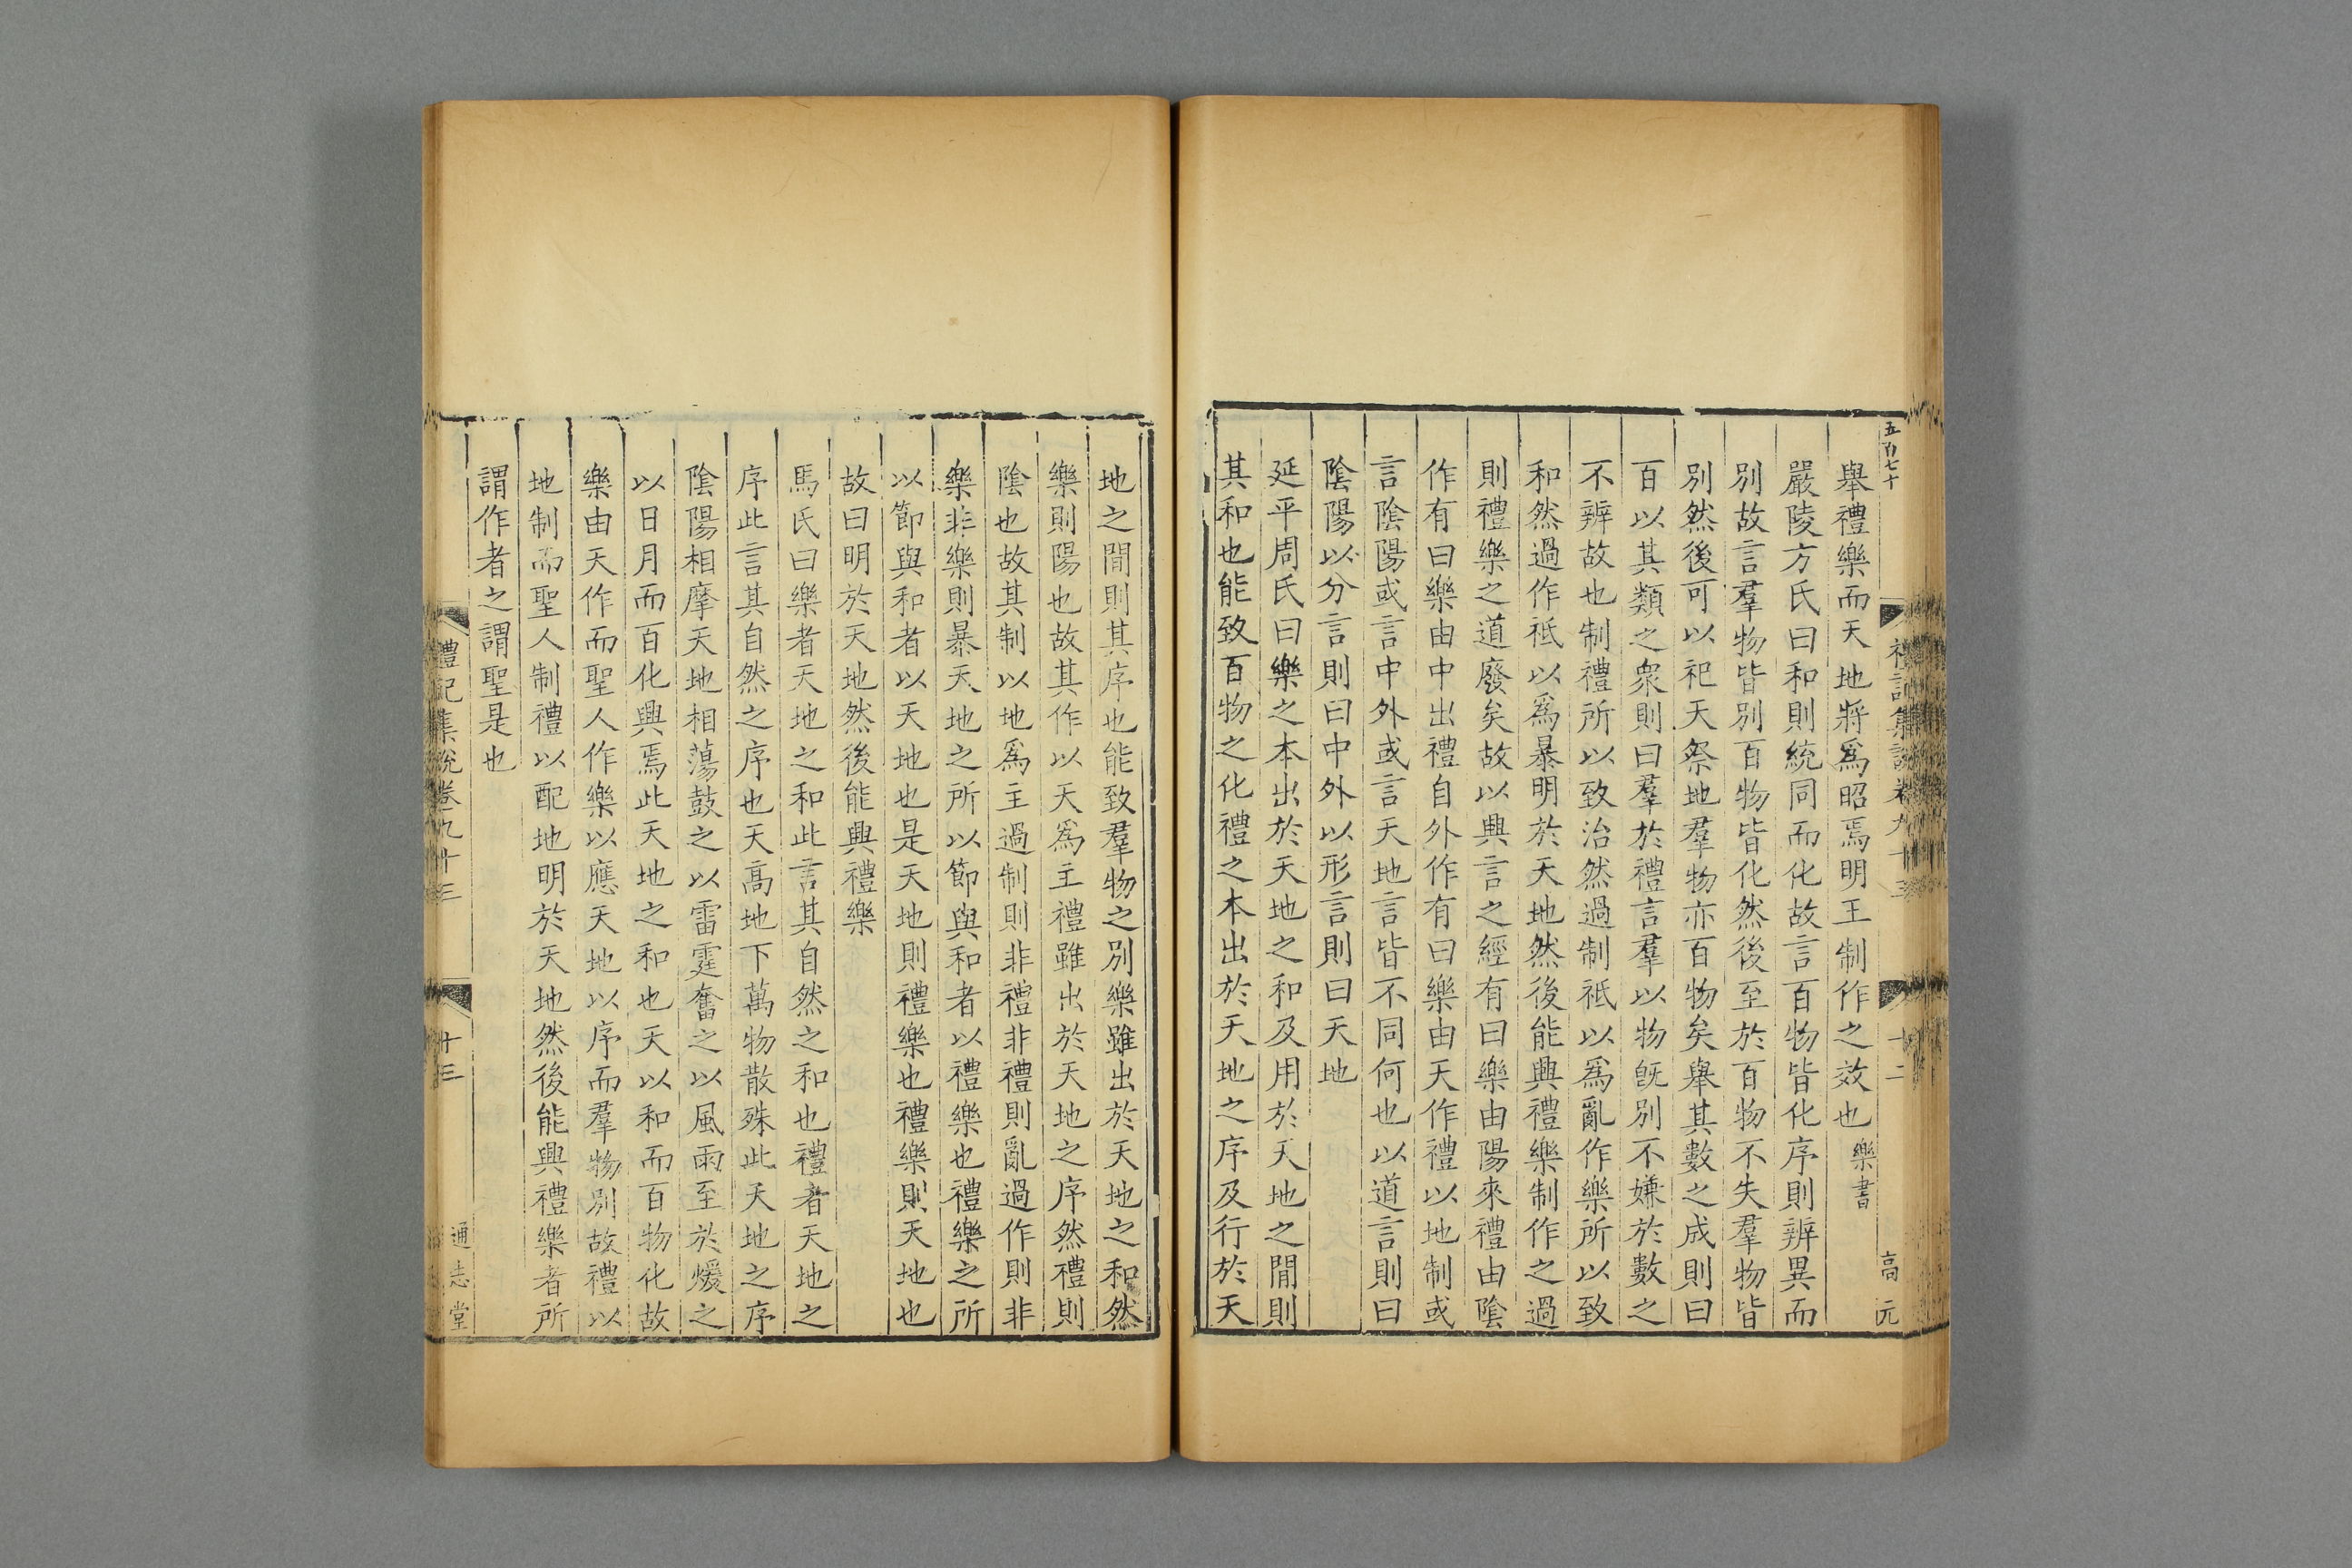 五百七十
禮記集說卷九十三
十二
高元
舉禮樂而天地將爲昭焉明王制作之效也樂書
嚴陵方氏曰和則統同而化故言百物皆化序則辨異而
別故言羣物皆別百物皆化然後至於百物不失羣物皆
別然後可以祀天祭地羣物亦百物矣舉其數之成則曰
百以其類之衆則曰羣於禮言羣以物旣別不嫌於數之
不辨故也制禮所以致治然過制祗以爲亂作樂所以致
和然過作祗以爲暴明於天地然後能興禮樂制作之過
則禮樂之道廢矣故以興言之經有曰樂由陽來禮由陰
作有曰樂由中出禮自外作有曰樂由天作禮以地制或
言陰陽或言中外或言天地言皆不同何也以道言則曰
陰陽以分言則曰中外以形言則曰天地
延平周氏曰樂之本出於天地之和及用於天地之閒則
其和也能致百物之化禮之本出於天地之序及行於天
地之閒則其序也能致羣物之別樂雖出於天地之和然
樂則陽也故其作以天爲主禮雖出於天地之序然禮則
陰也故其制以地爲主過制則非禮非禮則亂過作則非
樂非樂則暴天地之所以節與和者以禮樂也禮樂之所
以節與和者以天地也是天地則禮樂也禮樂則天地也
故曰明於天地然後能興禮樂
馬氏曰樂者天地之和此言其自然之和也禮者天地之
序此言其自然之序也天高地下萬物散殊此天地之序
陰陽相摩天地相蕩鼓之以雷霆奮之以風雨至於煖之
以日月而百化興焉此天地之和也天以和而百物化故
樂由天作而聖人作樂以應天地以序而羣物別故禮以
地制而聖人制禮以配地明於天地然後能興禮樂者所
謂作者之謂聖是也
禮記集說卷九十三
十三
通志堂